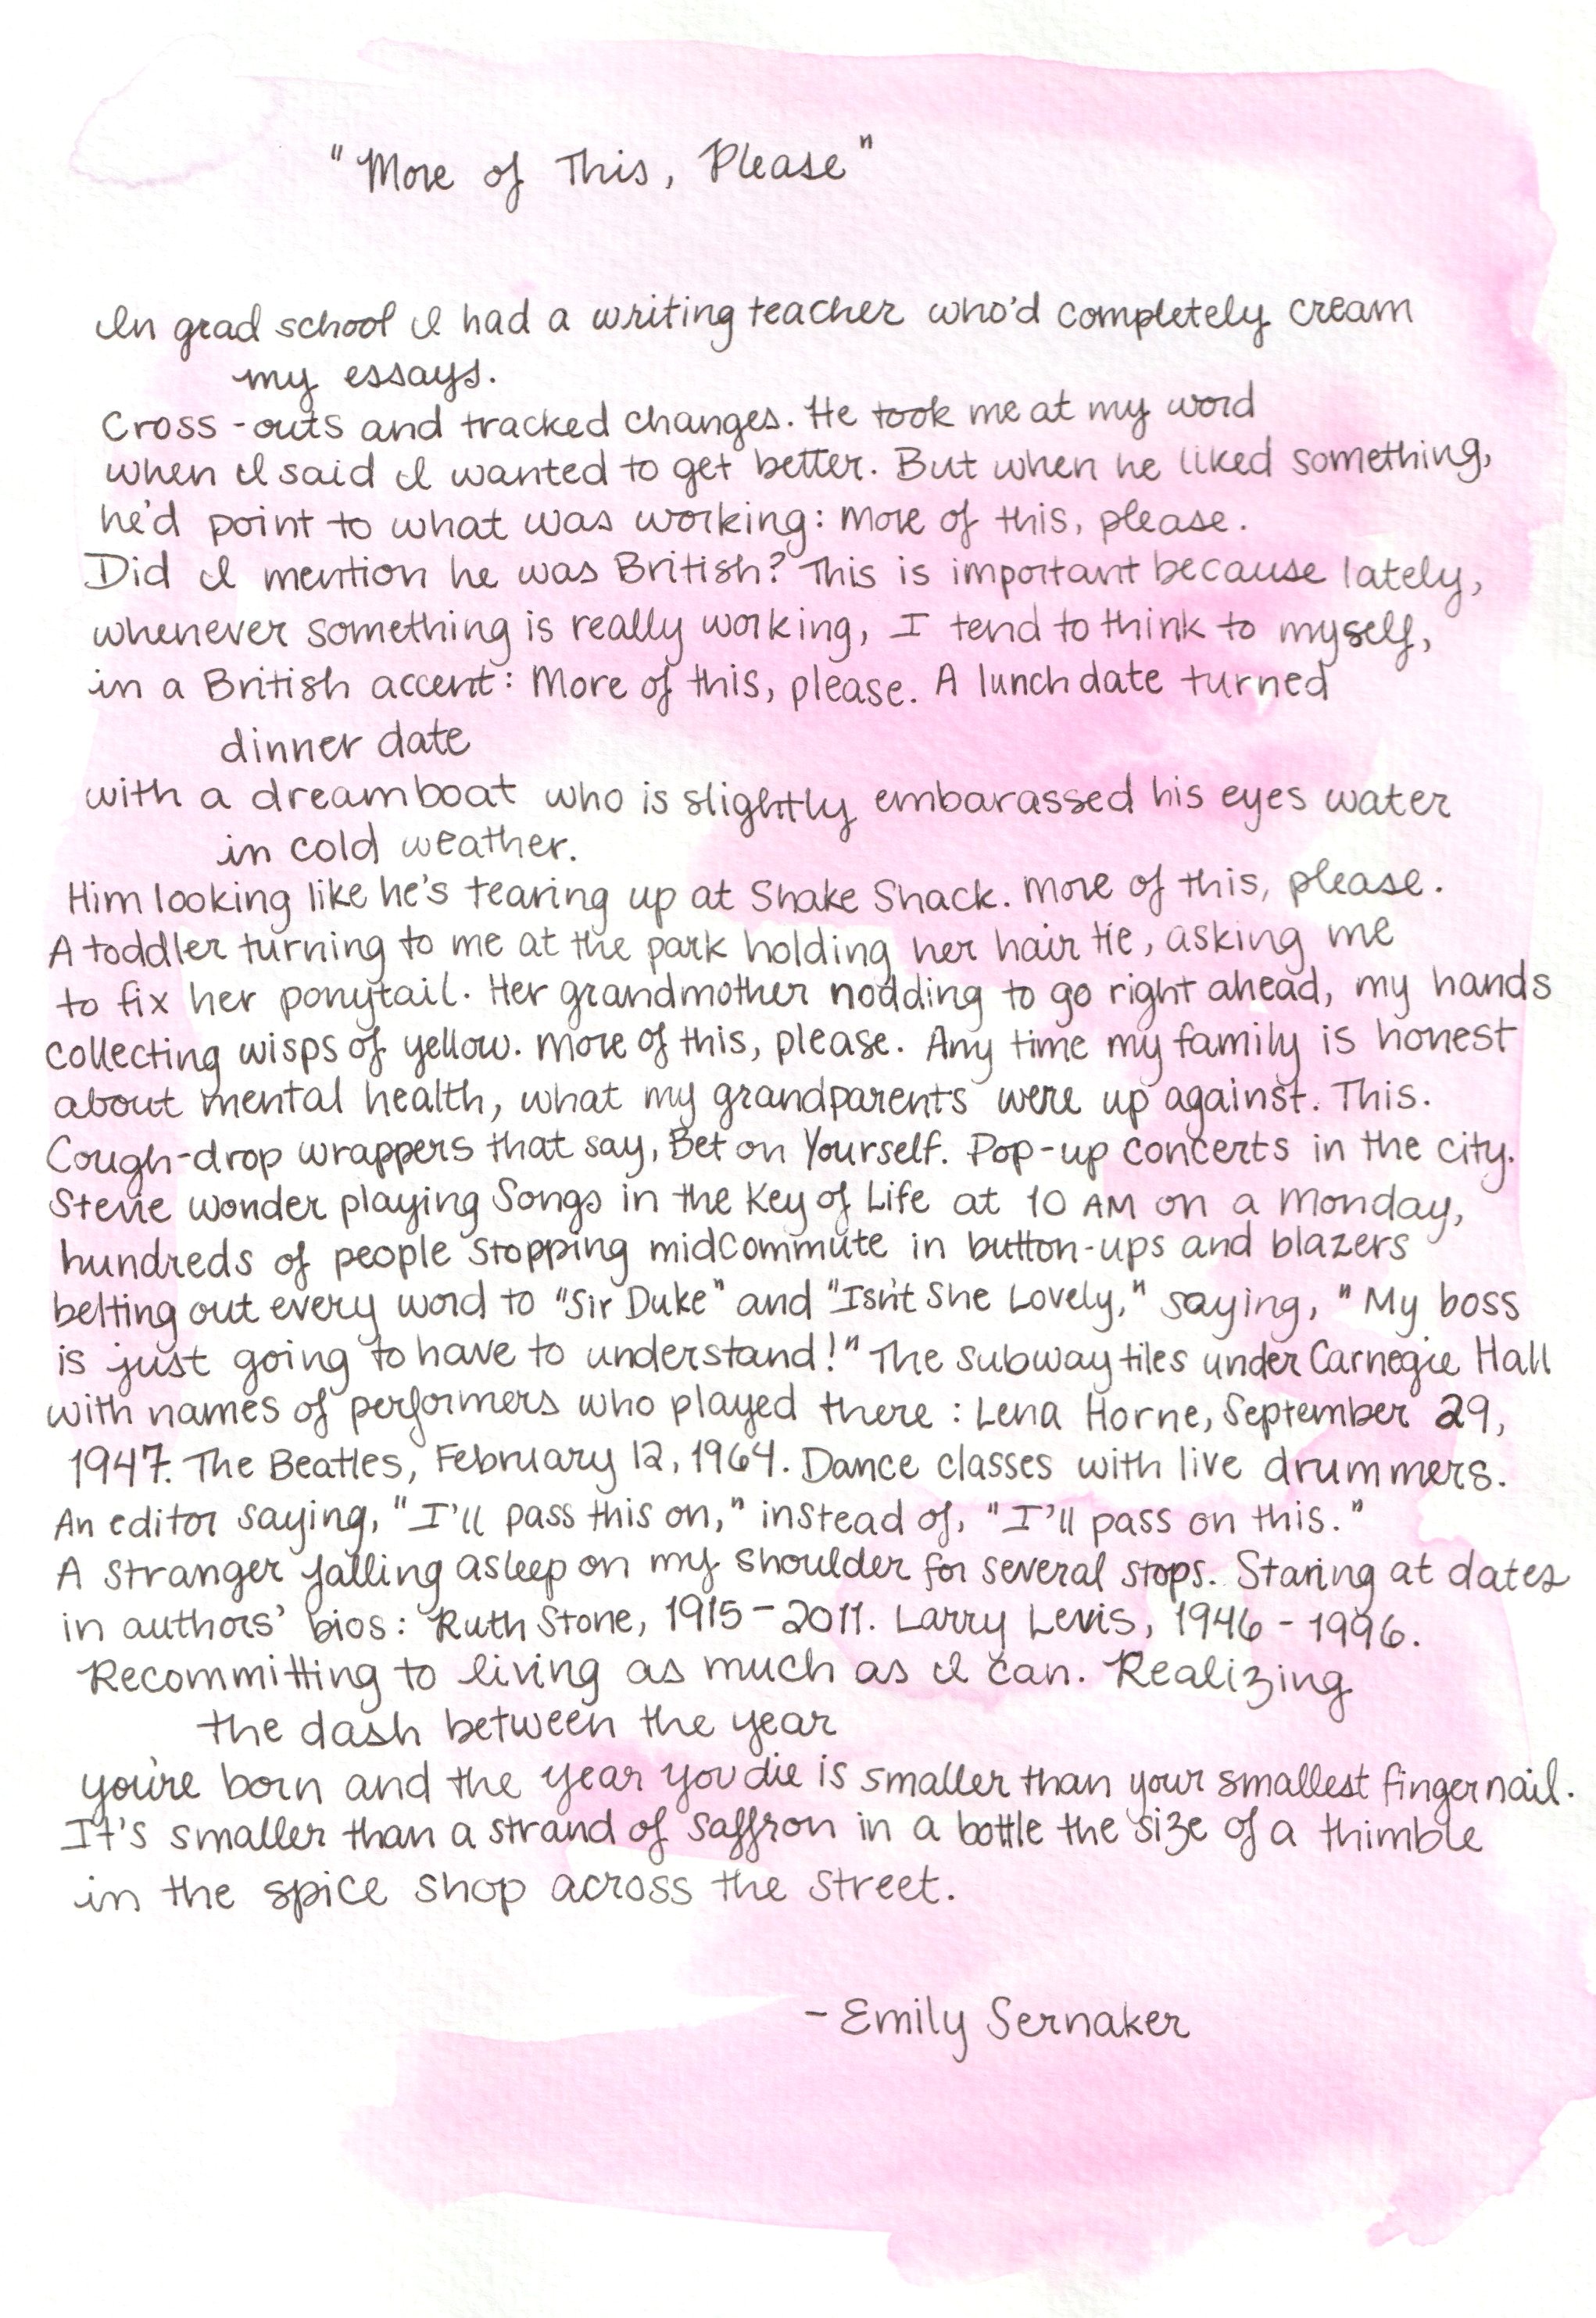 "More of This, Please"
In grad school I had a writing teacher who'd completely cream
my essays.
Cross-outs and tracked changes. He took me at my word
when I said I wanted to get better. But when he liked something,
he'd point to what was working: More of this, please.
Did I mention he was British? This is important because lately,
whenever something is really working, I tend to think to myself,
in a British accent: More of this, please. A lunch date turned
dinner date
with a dreamboat who is slightly embarassed his eyes water
in cold weather.
Him looking like he's tearing up at Shake Shack. More of this, please.
A toddler turning to me at the park holding her hair tie, asking me
to fix her ponytail. Her grandmother nodding to go right ahead, my hands
collecting wisps of yellow. More of this, please. Any time my family is honest
about mental health, what my grandparents were up against. This.
Cough-drop wrappers that say, Bet on Yourself. Pop-up concerts in the city.
Stevie Wonder playing Songs in the Key of Life at 10 AM on a Monday,
hundreds of people stopping midcommute in button-ups and blazers
belting out every word to "Sir Duke" and "Isn't She Lovely," saying, "My boss
is just going to have to understand!" The subway tiles under Carnegie Hall
with names of performers who played there: Lena Horne, September 29,
1947. The Beatles, February 12, 1964. Dance classes with live drummers.
An editor saying, "I'll pass this on," instead of, "I'll pass on this."
A stranger falling asleep on my shoulder for several stops. Staring at dates
in authors' bios: Ruth Stone, 1915-2011. Larry Levis, 1946-1996.
Recommitting to living as much as I can. Realizing
the dash between the year
you're born and the year you die is smaller than your smallest fingernail.
It's smaller than a strand of saffron in a bottle the size of a thimble
in the spice shop across the street.
- Emily Sernaker